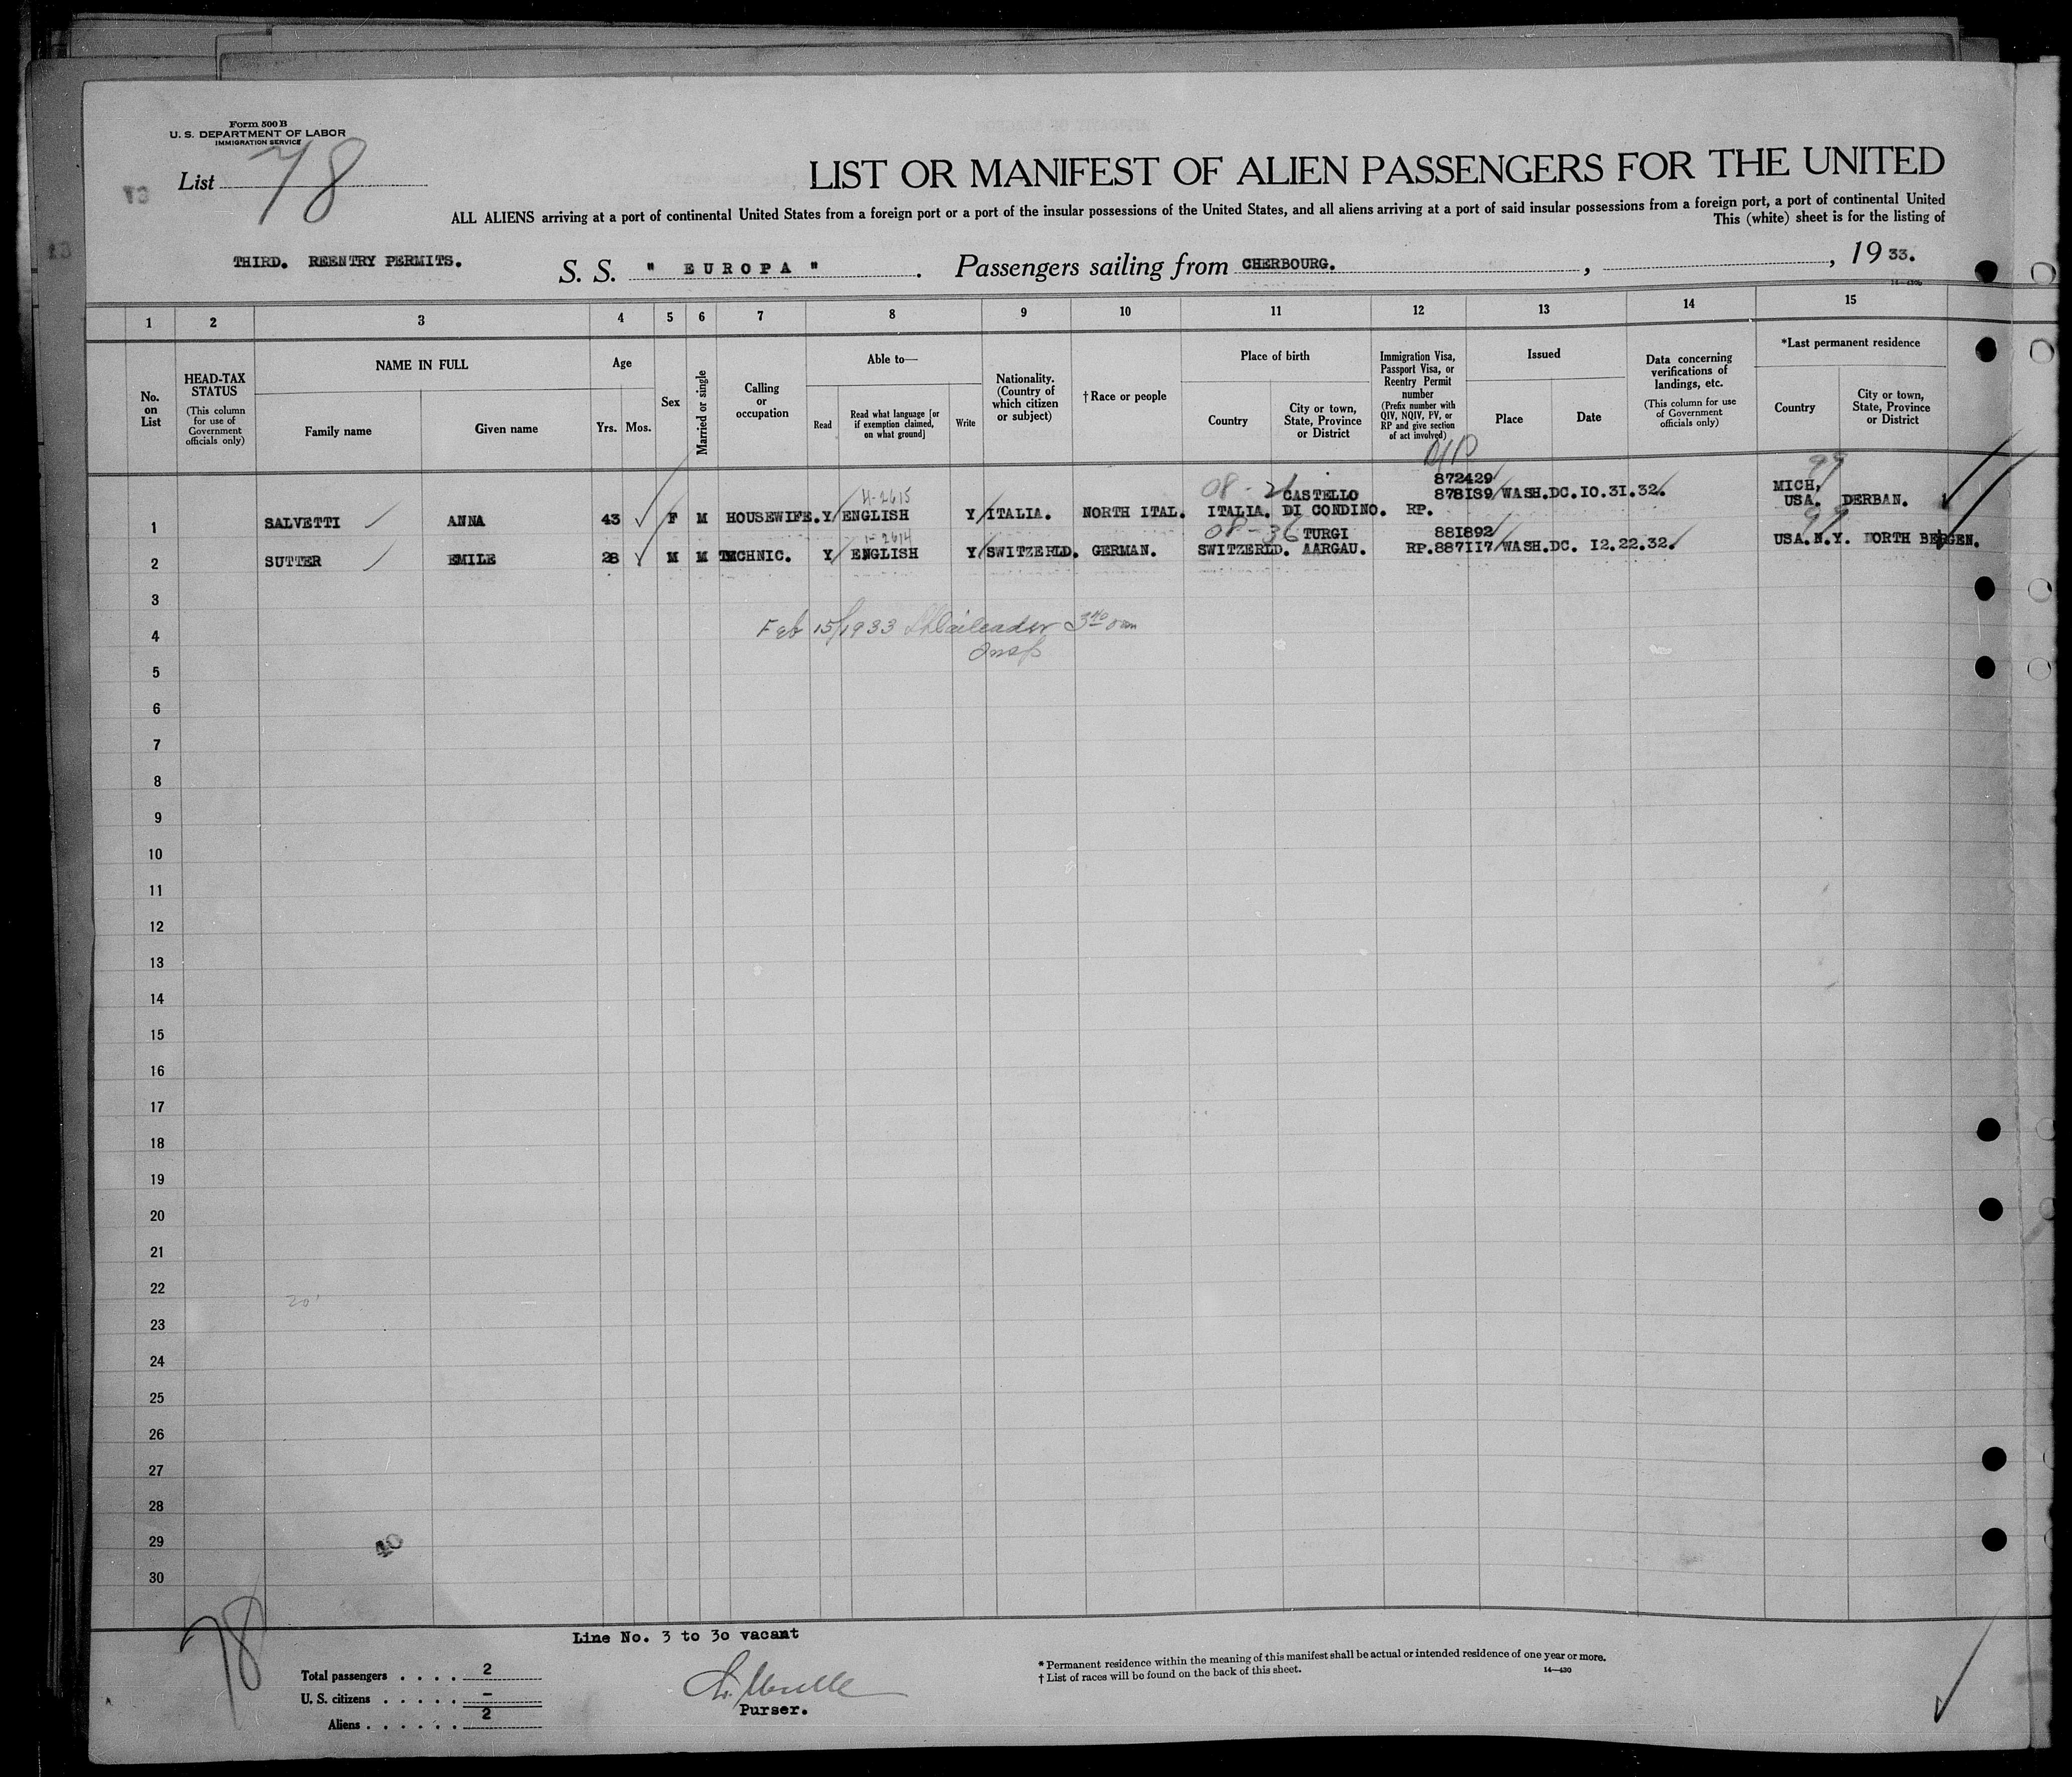 Form 500 B
U. S. DEPARTMENT OF LABOR
IMMIGRATION SERVICE
List 78
LIST OR MANIFEST OF ALIEN PASSENGERS FOR THE UNITED
ALL ALIENS arriving at a port of continental United States from a foreign port or a port of the insular possessions of the United States, and all aliens arriving at a port of said insular possessions from a foreign port, a port of continental United
This (white) sheet is for the listing of
THIRD. REENTRY PERMITS. S. S. " EUROPA " . Passengers sailing from CHERBOURG. , , 19 33.
1 2 3 4 5 6 7 8 9 10 11 12 13 14 15
No. on List
HEAD-TAX STATUS (This column for use of Government officials only)
NAME IN FULL
Family name Given name
Age
Yrs. Mos.
Sex
Married or single
Calling or occupation
Able to—
Read Read what language [or if exemption claimed, on what ground] Write
Nationality. (Country of which citizen or subject)
†Race or people
Place of birth
Country City or town, State, Province or District
Immigration Visa, Passport Visa, or Reentry Permit number (Prefix number with QIV, NQIV, PV, or RP and give section of act involved)
Issued
Place Date
Data concerning verifications of landings, etc. (This column for use of Government officials only)
*Last permanent residence
Country City or town, State, Province or District
4-2615 08-21 CASTELLO 872429 878189 WASH.DC.10.31.32. 99 MICH, USA. DERBAN.
1 SALVETTI ANNA 43 F M HOUSEWIFE. Y ENGLISH Y ITALIA. NORTH ITAL. ITALIA. DI CONDINO. RP.
1-2614 08-36 TURGI 881892 99
2 SUTTER EMILE 28 M M TECHNIC. Y ENGLISH Y SWITZERLD. GERMAN. SWITZERLD. AARGAU. RP.887117 WASH.DC. 12.22.32. USA.N.Y. NORTH BERGEN.
3
Feb 15/1933
4
Insp
5
6
7
8
9
10
11
12
13
14
15
16
17
18
19
20
21
22
20
23
24
25
26
27
28
29
40
30
78
Line No. 3 to 30 vacant
Total passengers . . . . 2
U. S. citizens . . . . . –
Aliens . . . . . . 2
Purser.
* Permanent residence within the meaning of this manifest shall be actual or intended residence of one year or more.
† List of races will be found on the back of this sheet.
14—430